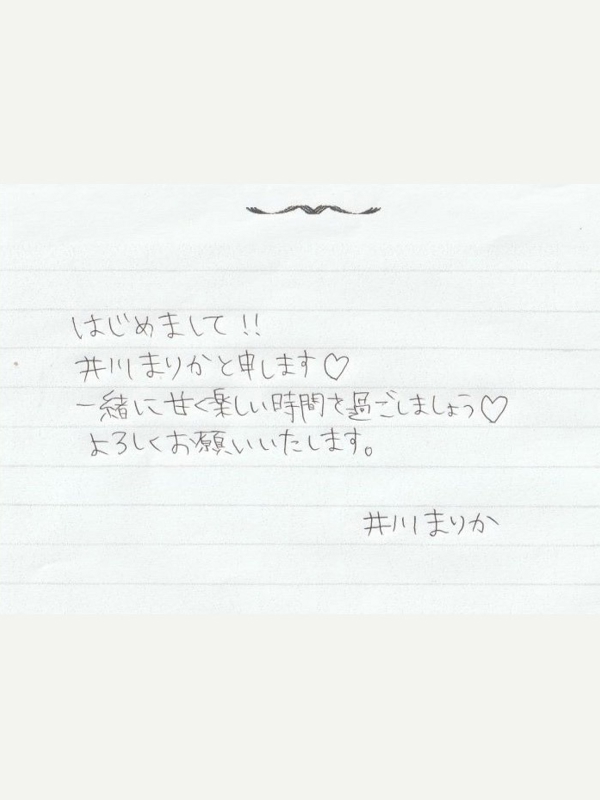 はじめまして!!
井川まりかと申します♡
一緒に甘く楽しい時間を過ごしましょう♡
よろしくお願いいたします。
井川まりか